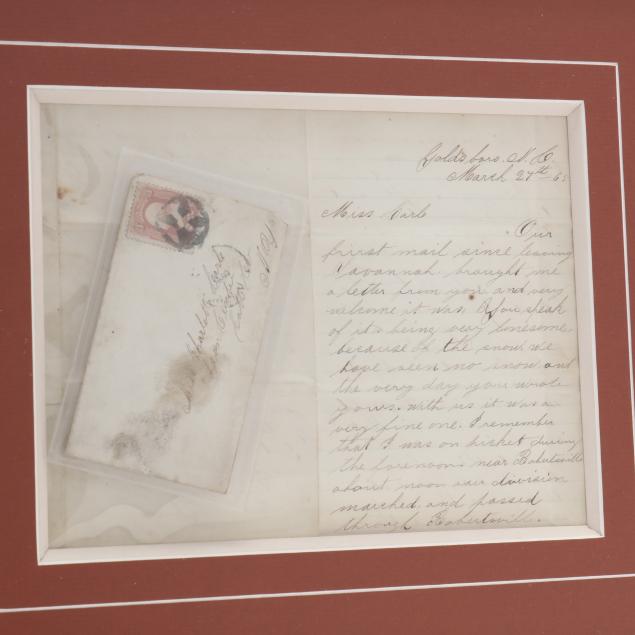 Goldsboro. N. C.
March 27th 65
Miss Carle
Our
firrst mail since leaving
Savannah brought me
a letter from you and very
welcome it was. You speak
of its being very lonesome
because of the snow we
have seen no snow and
the very day you wrote
yours. with us it was a
very fine one. I remember
that I was on picket during
the forenoon near Robertsville
about noon our division
marched and passed
through Robertsvill.
Miss Charlotte Carle
N. Y.